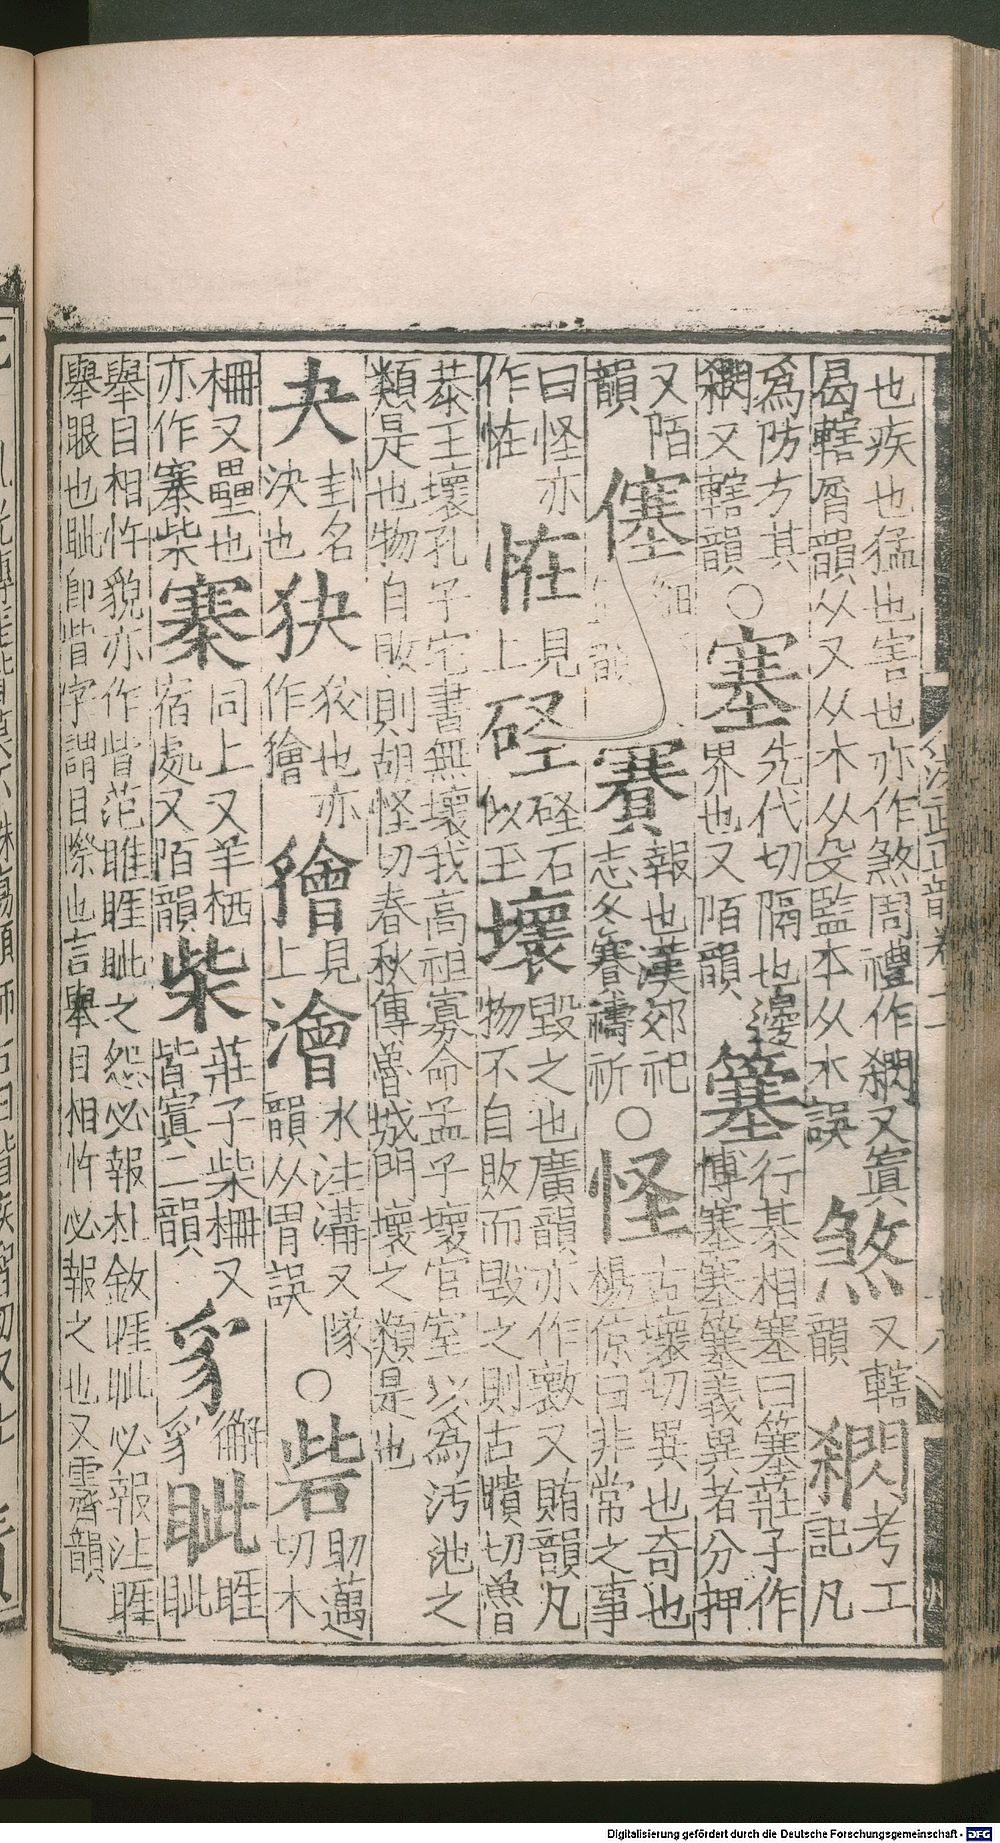 也疾也猛也害也亦作煞周禮作閷又寘
曷轄屑韻从乂从木从殳監本从水誤
煞
又轄
韻
閷
考工
記凡
爲防方其
閷又轄韻〇
塞
先代切隔也邊
界也又陌韻
簺
行棊相塞曰簺莊子作
博塞塞簺義異者分押
又陌
韻
僿
細
賽
報也漢郊祀
志冬賽禱祈
〇
怪
古壞切異也奇也
楊倞曰非常之事
曰怪亦
作恠
恠
見
上
硁
硁石
似玉
壞
毀之也廣韻亦作𣀩又賄韻凡
物不自敗而毀之則古聵切魯
恭王壞孔子宅書無壞我高祖寡命孟子壞宮室以爲汚池之
類是也物自敗則胡怪切春秋傳魯城門壞之類是也
夬
卦名
決也
狭
狡也亦
作獪
獪
見
上
澮
水注溝又隊
韻从胃誤
〇
砦
助邁
切木
柵又壘也
亦作寨柴
寨
同上又羊栖
宿處又陌韻
柴
莊子柴柵又
皆寘二韻
豸
獬
豸
眦
睚
眦
舉目相忤貌亦作眥范睢睚眦之怨必報杜欽睚眦必報注睚
舉眼也眦即眥字謂目際也言舉目相忤必報之也又霽韻
洪武正韻卷十一
Digitalisierung gefördert durch die Deutsche Forschungsgemeinschaft - DFG